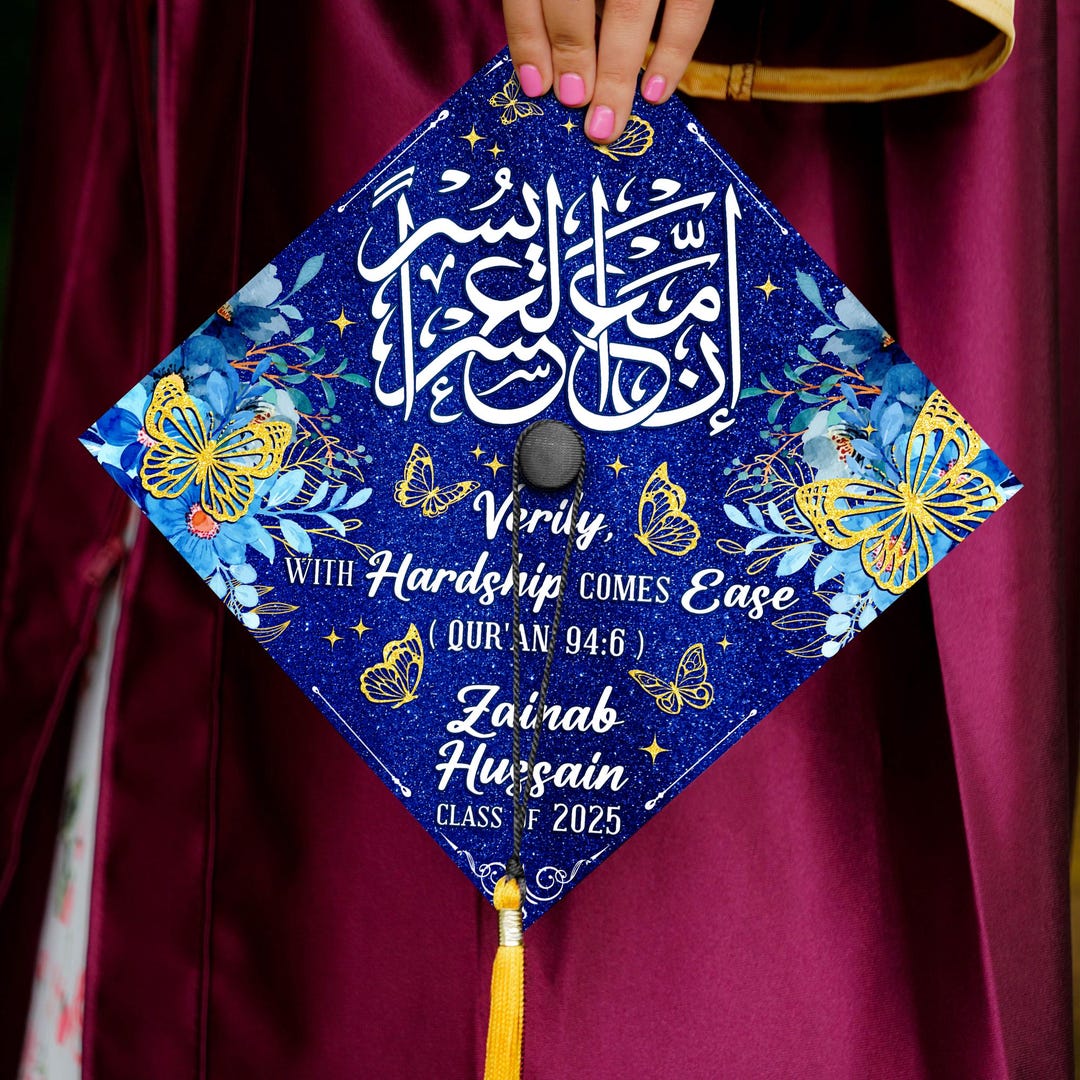 إن مع العسر يسراً
Verily,
WITH Hardship COMES Ease
( QUR'AN 94:6 )
Zainab
Hussain
CLASS OF 2025